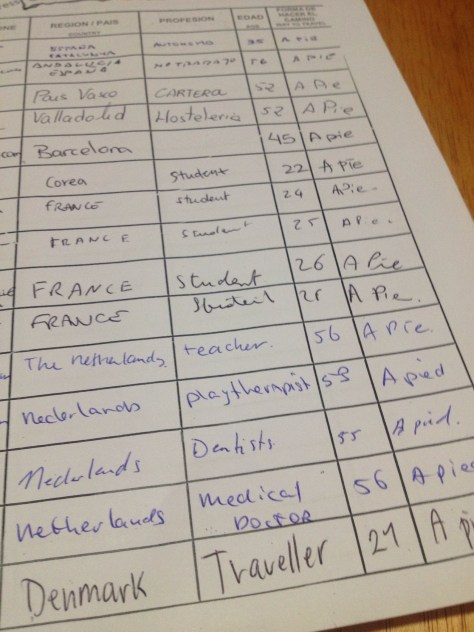 REGION / PAIS PROFESION EDAD FORMA DE HACER EL CAMINO
COUNTRY WAY TO TRAVEL
ESPAÑA CATALUNYA AUTONOMO 35 A PIE
ANDALUCIA ESPAÑA 56 A PIE
Pais Vaxo CARTERA 52 A Pie
Valladolid Hosteleria 52 A Pie
Barcelona 45 A pie
Corea student 22 A Pie
FRANCE student 24 A Pie.
FRANCE student 25 A Pie.
FRANCE Student 26 A Pie
FRANCE A Pie.
The netherlands, teacher. 56 A Pie.
nederlands playtherapist A pied
Nederlands Dentists 55 A pied.
netherlands medical DOCTOR 56 A pied
Denmark Traveller 21 A pi